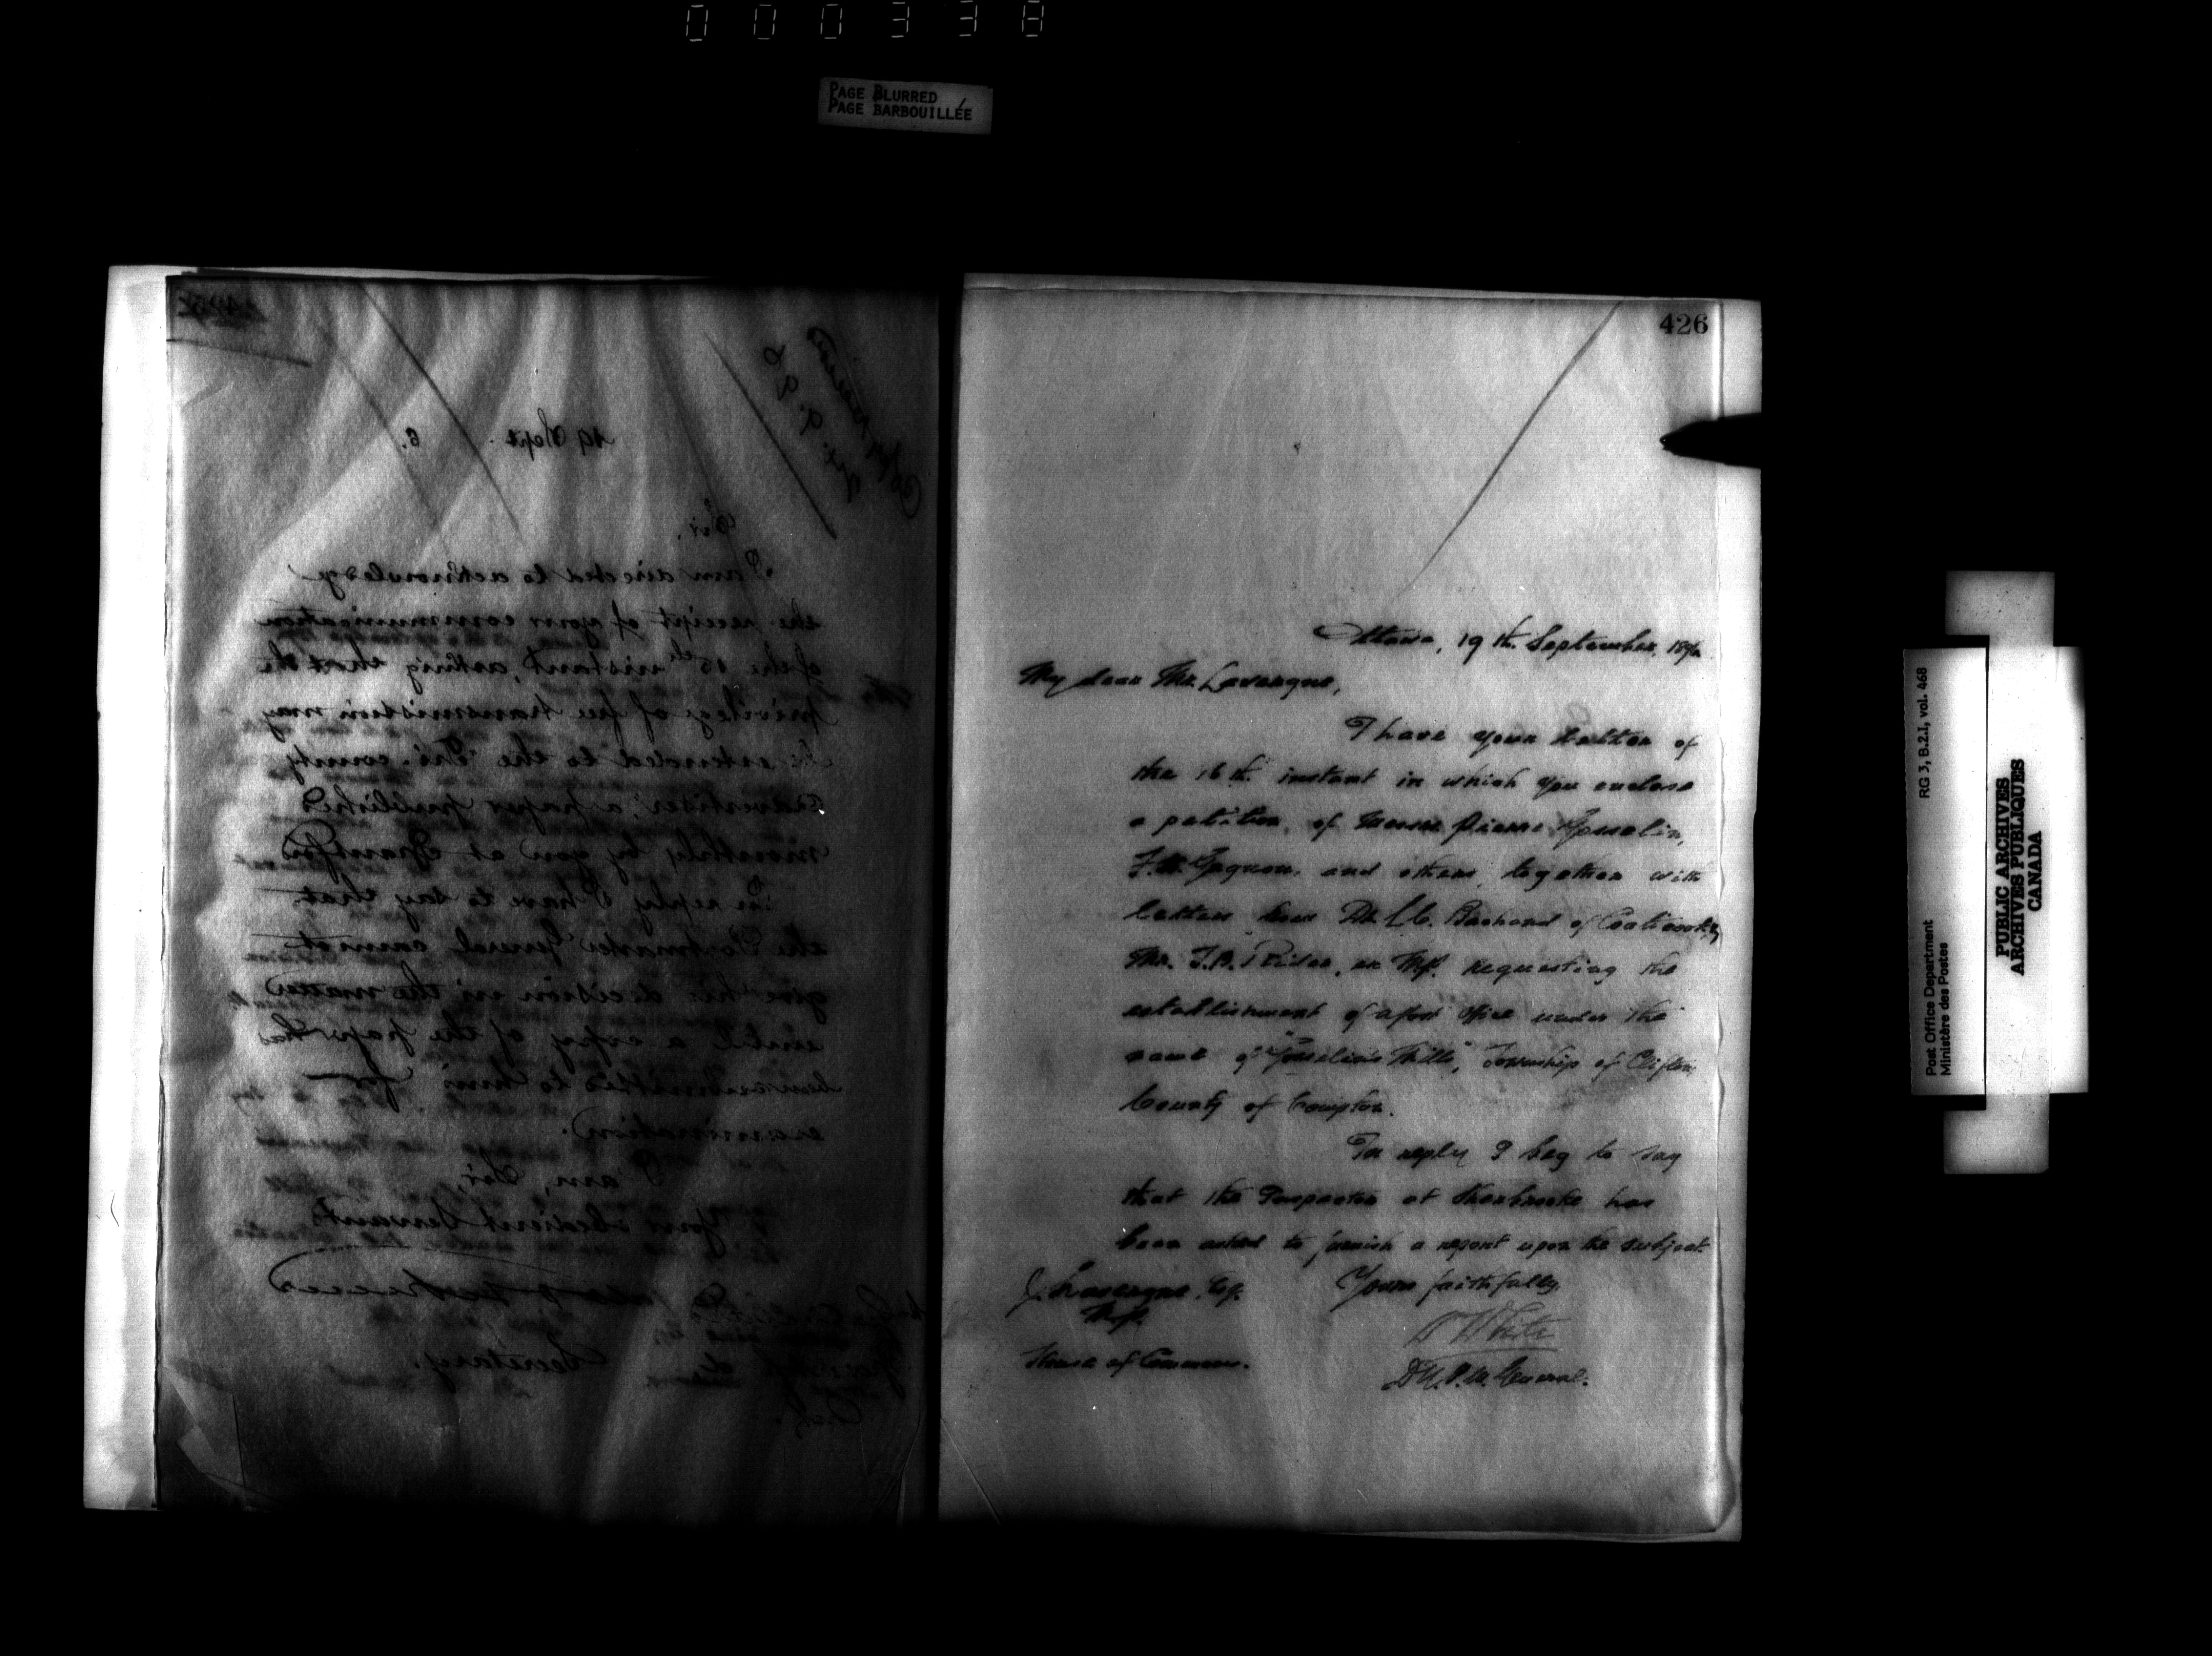 000338
PAGE BLURRED
PAGE BARBOUILLÉE
425
19 Sept. 6.
Sir,
I am directed to acknowledge
the receipt of your communication
of the 15th instant, asking that the
privilege of free transmission may
be extended to the "Tri-county
advertiser," a paper published
monthly by you at
In reply I have to say that
the Postmaster General cannot
give his decision in the matter
until a copy of the paper has
been submitted to him for
examination.
I am, Sir,
Your obedient Servant,
Secretary.
426
Ottawa, 19th. September, 1896
My dear Mr. Lavergne,
I have your letter of
the 16th. instant in which you enclose
a petition of Messrs Pierre Gosselin,
Gagnon, and others, together with
letters from Dr. Bachand of Coaticook,
Mr. Rider, ex M.P. requesting the
establishment of a Post Office under the
name of "Gosselin's Mills", Township of Clifton,
County of Compton.
In reply I beg to say
that the Inspector at Sherbrooke has
been asked to furnish a report upon the subject.
Yours faithfully,
J. Lavergne, Esq.
M.P.
W White
House of Commons.
D.P.M. General.
RG 3, B.2.I, vol. 468
Post Office Department
Ministère des Postes
PUBLIC ARCHIVES
ARCHIVES PUBLIQUES
CANADA